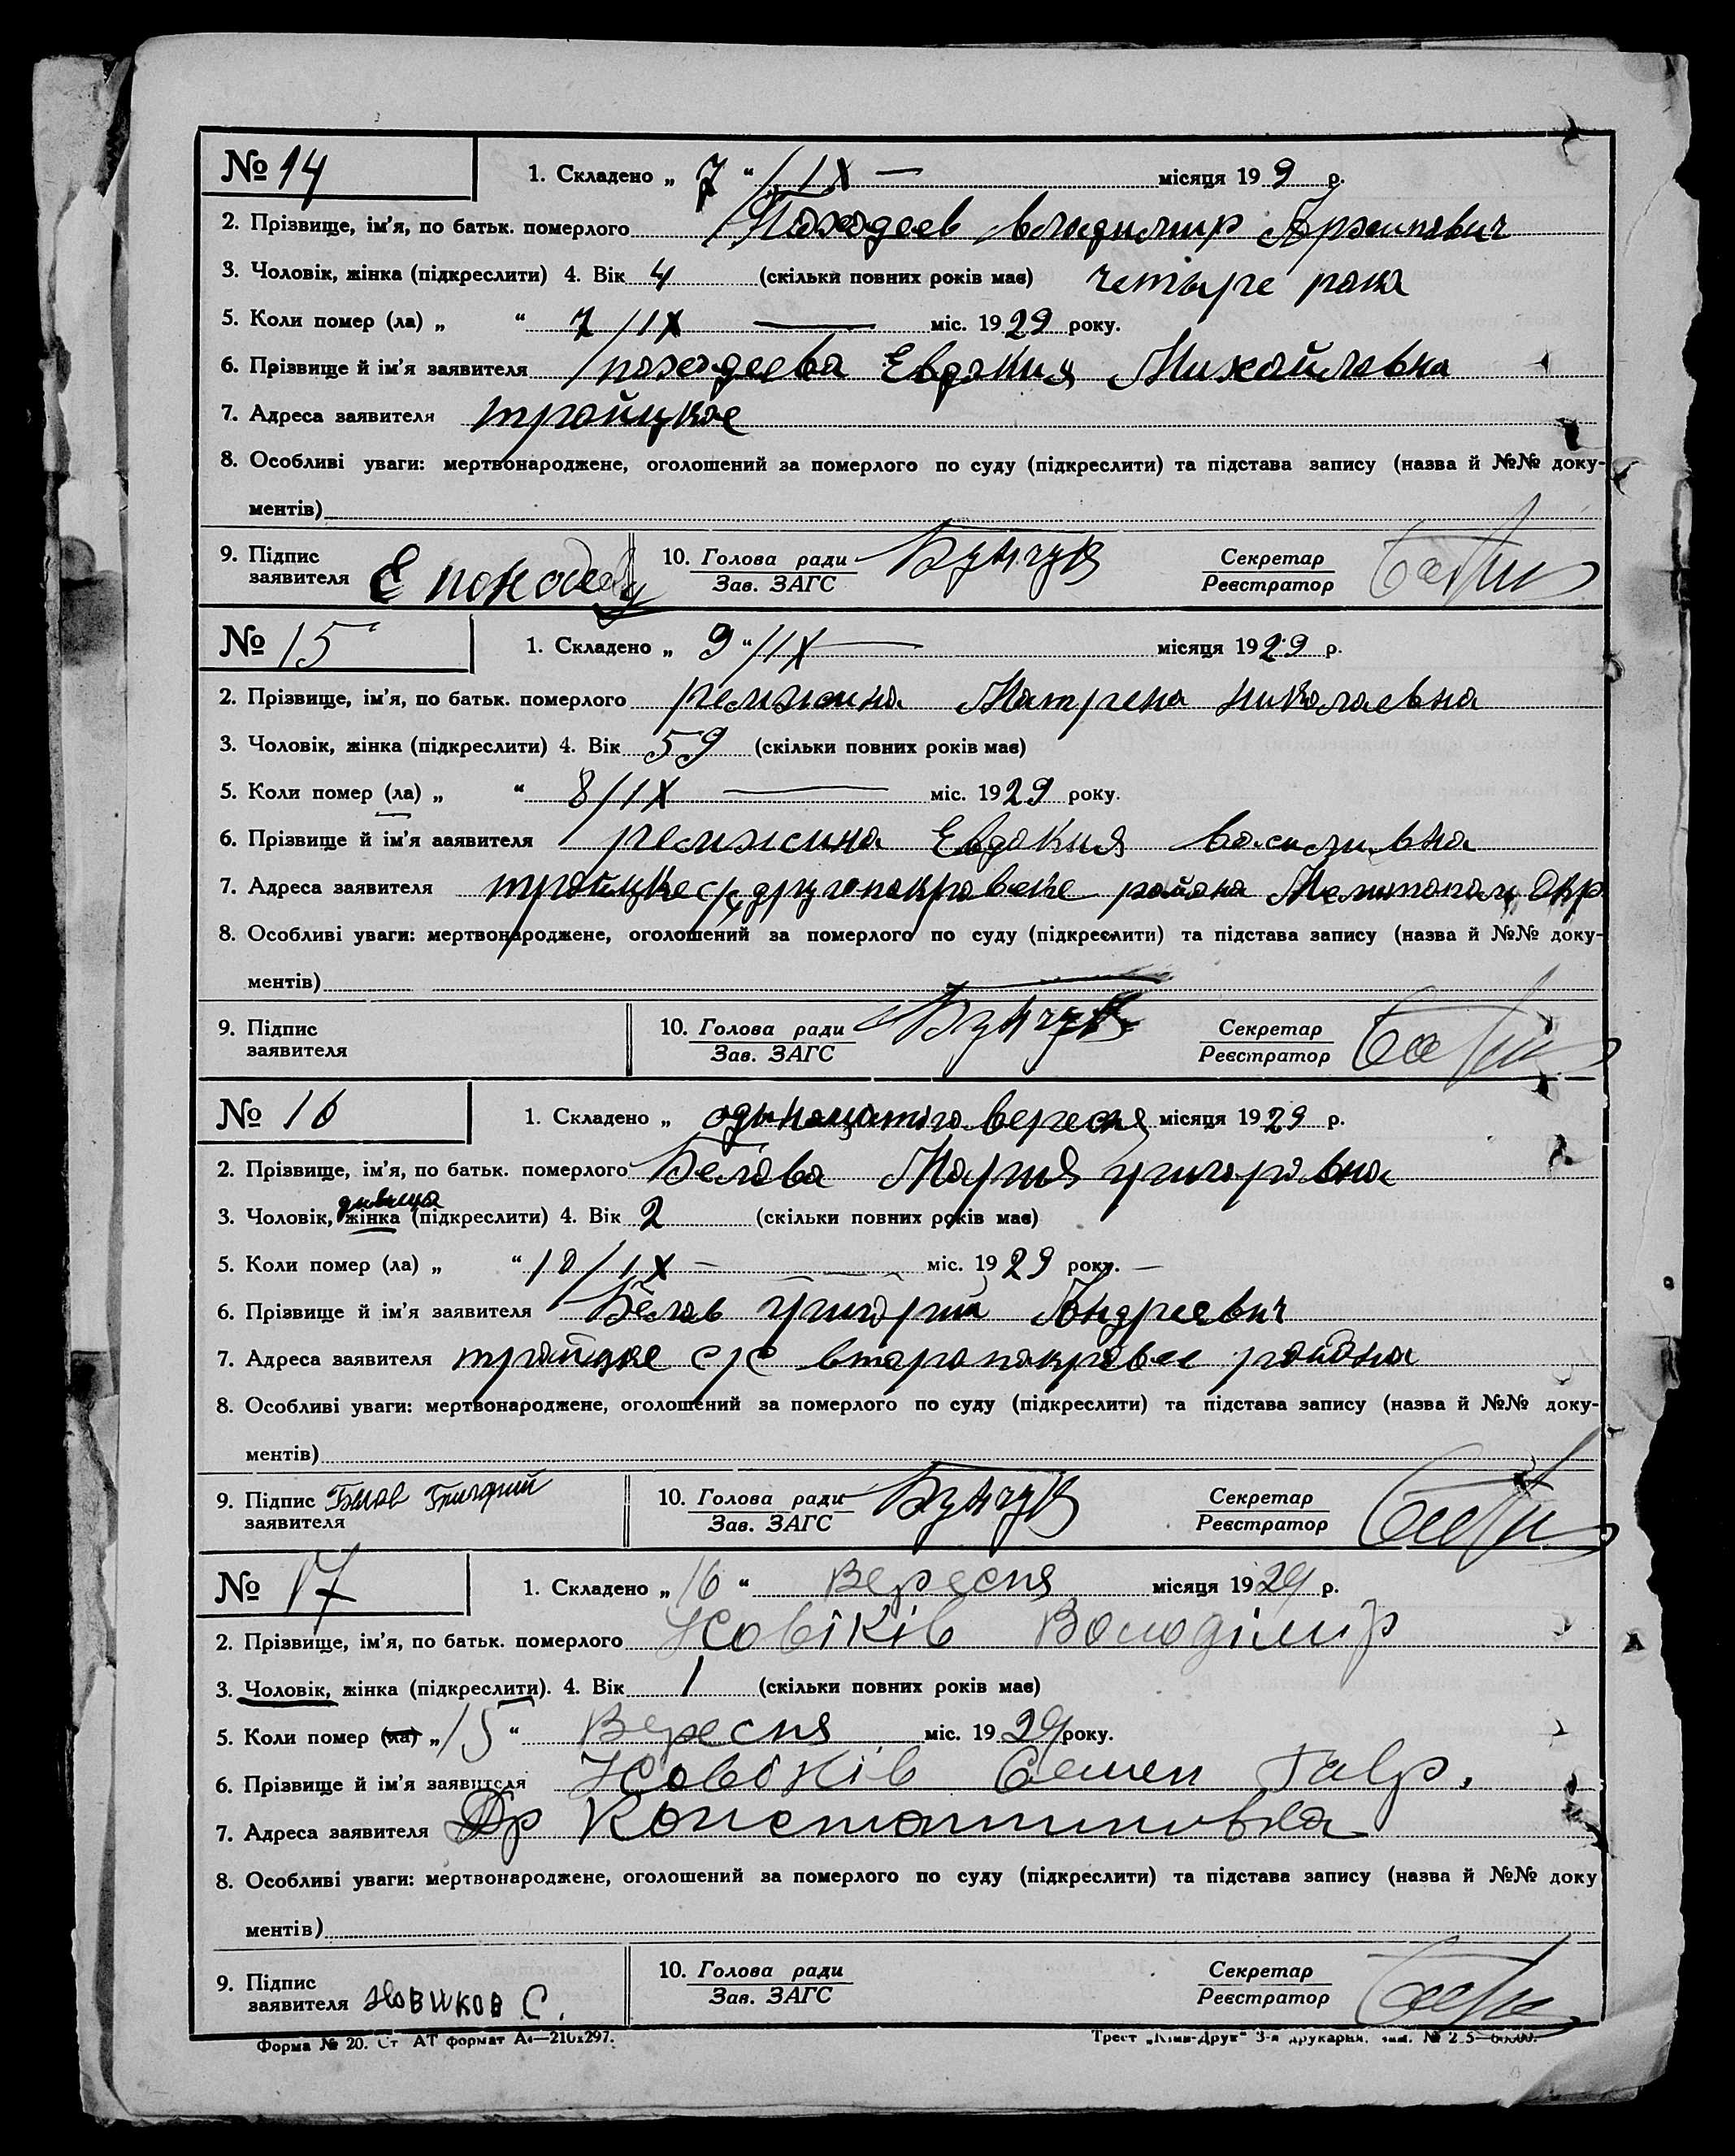 № 14 1. Складено „ 7 “ / IX — місяця 19 9 р.
2. Прізвище, ім'я, по батьк. померлого Походеев владимир Архипович
3. Чоловік, жінка (підкреслити) 4. Вік 4 (скільки повних років має) четыре рока
5. Коли помер (ла) „ “ 7 / IX — міс. 19 29 року.
6. Прізвище й ім'я заявителя походеева Евдокия Михайловна
7. Адреса заявителя тройцкое
8. Особливі уваги: мертвонароджене, оголошений за померлого по суду (підкреслити) та підстава запису (назва й №№ доку-
ментів)
9. Підпис заявителя Е 10. Голова ради Зав. ЗАГС Бунчук Секретар Реєстратор
№ 15 1. Складено „ 9 “ / IX — місяця 19 29 р.
2. Прізвище, ім'я, по батьк. померлого Матрена николаевна
3. Чоловік, жінка (підкреслити) 4. Вік 59 (скільки повних років має)
5. Коли помер (ла) „ “ 8 / IX — міс. 19 29 року.
6. Прізвище й ім'я заявителя Евдокия василивна
7. Адреса заявителя тройцке с/с другопокровске района Мелитопол Окр
8. Особливі уваги: мертвонароджене, оголошений за померлого по суду (підкреслити) та підстава запису (назва й №№ доку-
ментів)
9. Підпис заявителя 10. Голова ради Зав. ЗАГС Бунчук Секретар Реєстратор
№ 16 1. Складено „ одинацятого вересня місяця 19 29 р.
2. Прізвище, ім'я, по батьк. померлого Белова Мария григоровна
дивиця
3. Чоловік, жінка (підкреслити) 4. Вік 2 (скільки повних років має)
5. Коли помер (ла) „ “ 10 / IX — міс. 19 29 року. —
6. Прізвище й ім'я заявителя Белов григорий Андреевич
7. Адреса заявителя тройцке с/с второпокровск района
8. Особливі уваги: мертвонароджене, оголошений за померлого по суду (підкреслити) та підстава запису (назва й №№ доку-
ментів)
9. Підпис заявителя Белов Григорий 10. Голова ради Зав. ЗАГС Бунчук Секретар Реєстратор
№ 17 1. Складено „ 16 “ Вересня місяця 19 29 р.
2. Прізвище, ім'я, по батьк. померлого Новіків Володімир
3. Чоловік, жінка (підкреслити). 4. Вік 1 (скільки повних років має)
5. Коли помер (ла) „ 15 “ Вересня міс. 19 29 року.
6. Прізвище й ім'я заявителя Новіків Семен Гавр.
7. Адреса заявителя Др Константиновка
8. Особливі уваги: мертвонароджене, оголошений за померлого по суду (підкреслити) та підстава запису (назва й №№ доку
ментів)
9. Підпис заявителя Новиков С. 10. Голова ради Зав. ЗАГС Секретар Реєстратор
Форма № 20. Ст АТ формат А4—210х297. Трест „Київ-Друк“ 3-я друкарня.